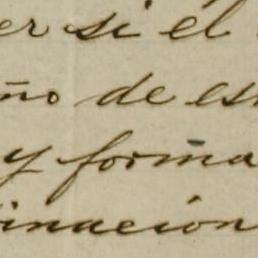 er si él
ño de es
y forma
inacion